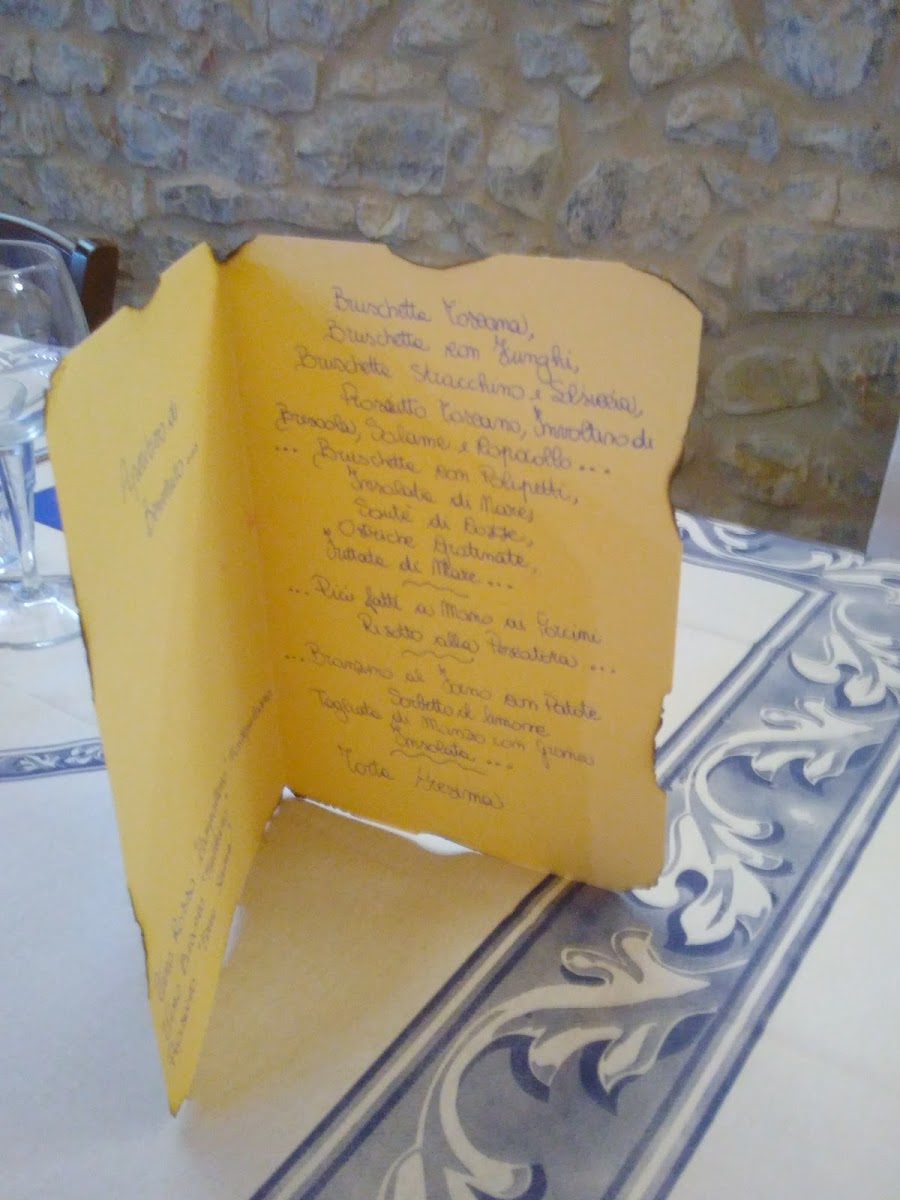 Aperitivo di
Benvenuto ...
Bruschetta Toscana,
Bruschetta con Funghi,
Bruschetta Stracchino e Salsiccia,
Prosciutto Toscano, Involtino di
Bresaola, Salame e Capocollo ...
... Bruschetta con Polipetti,
Insalata di Mare,
Sautè di Cozze,
Ostriche Gratinate,
Frittata di Mare ...
... Pici fatti a Mano ai Porcini
Risotto alla Pescatora ...
... Branzino al Forno con Patate
Sorbetto al Limone
Tagliata di Manzo con Grana
Insalata ...
Torta Cresima